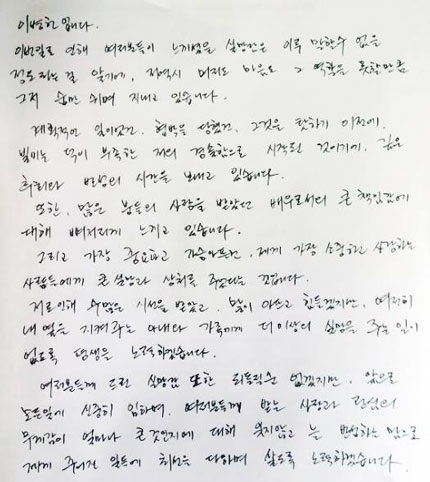 이병헌입니다.
이번일로 인해 여러분들이 느끼셨을 실망감은 이루 말할수 없을
정도라는걸 알기에, 저역시 머리도 마음도 그 역할을 못할만큼
그저 숨만 쉬며 지내고 있습니다.
계획적인 일이었건, 협박을 당했건, 그것을 탓하기 이전에,
빌미는 덕이 부족한 저의 경솔함으로 시작된 것이기에, 깊은
후회와 반성의 시간을 보내고 있습니다.
또한, 많은 분들의 사랑을 받았던 배우로서의 큰 책임감에
대해 뼈저리게 느끼고 있습니다.
그리고 가장 중요하고 가슴아프건, 제게 가장 소중하고 사랑하는
사람들에게 큰 실망과 상처를 주었다는 것입니다.
저로인해 수많은 시선을 받았고, 많이 아프고 힘들겠지만, 여전히
내 옆을 지켜주는 아내와 가족에게 더이상의 실망을 주는 일이
없도록 평생을 노력하겠습니다.
여러분들께 드린 실망감 또한 되돌릴순 없겠지만, 앞으로
모든일에 신중히 임하며, 여러분들께 받는 사랑과 관심의
무게감이 얼마나 큰것인지에 대해 잊지않고 늘 반성하는 맘으로
제게 주어진 일들에 최선을 다하며 살도록 노력하겠습니다.